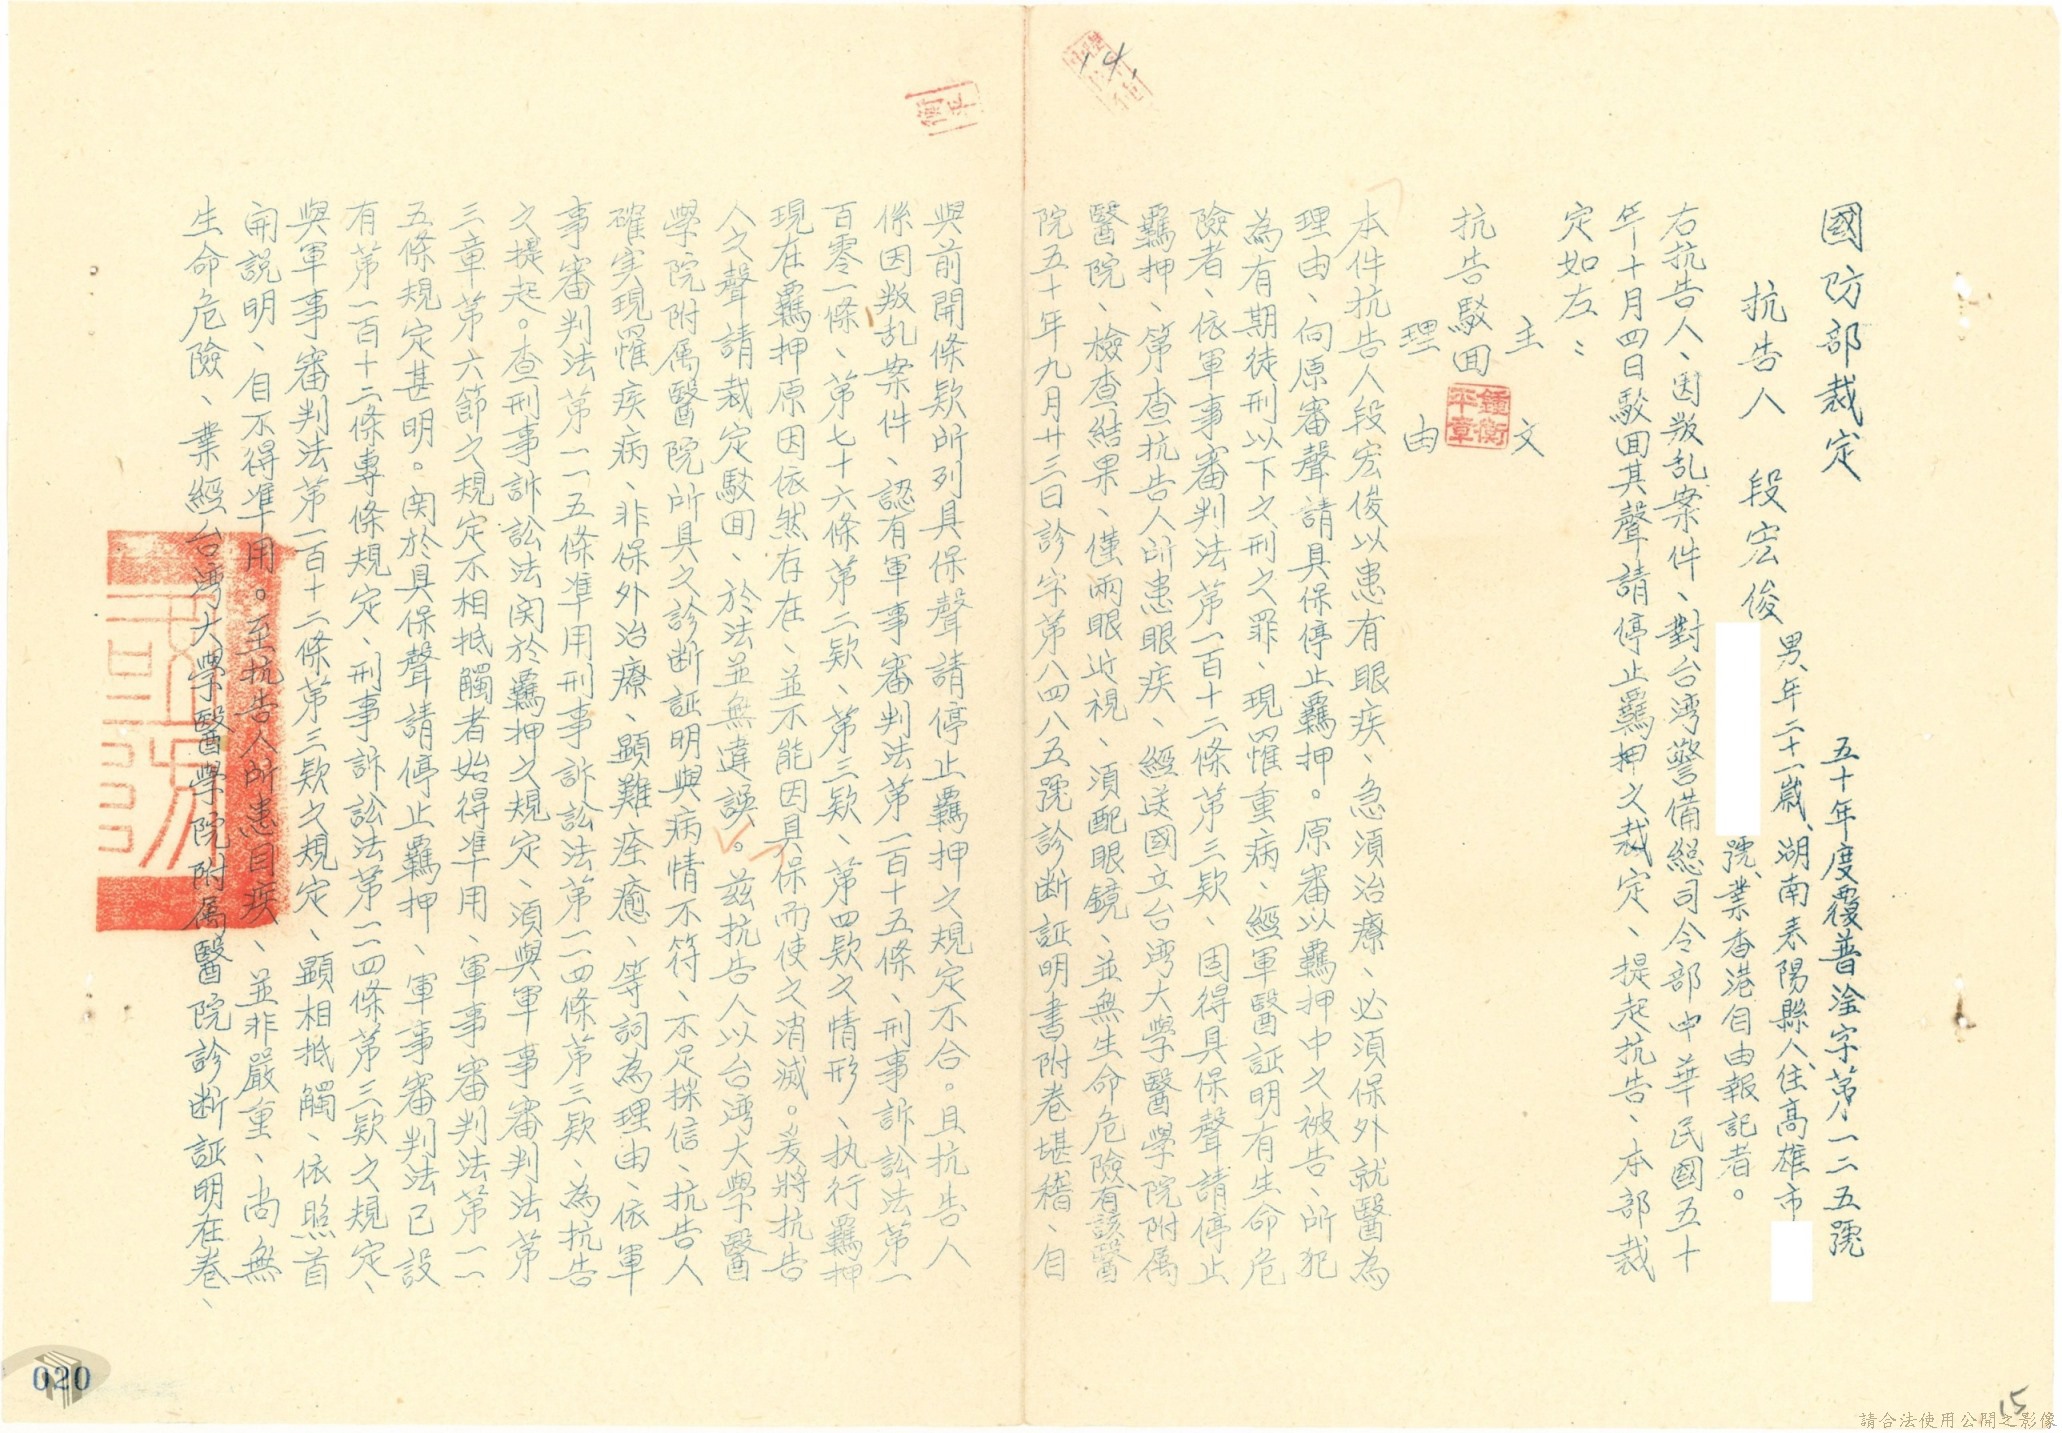 國防部裁定
五十年度覆普淦字第一二五號
抗告人　段宏俊
男、年二十一歲、湖南耒陽縣人、住高雄市
號、業香港自由報記者。
右抗告人、因叛乱案件、對台湾警備總司令部中華民國五十
年十月四日駁回其聲請停止羈押之裁定、提起抗告、本部裁
定如左：
主　文
抗告駁回
理　由
本件抗告人段宏俊以患有眼疾、急須治療、必須保外就醫為
理由、向原審聲請具保停止羈押。原審以羈押中之被告、所犯
為有期徒刑以下之刑之罪、現罹重病、經軍醫証明有生命危
險者、依軍事審判法第一百十二條第三欵、固得具保聲請停止
羈押、第查抗告人所患眼疾、經送國立台湾大學醫學院附属
醫院、檢查結果、僅兩眼近視、須配眼鏡、並無生命危險、有該醫
院五十年九月廿三日診字第八四八五號診断証明書附卷堪稽、自
與前開條欵所列具保聲請停止羈押之規定不合。且抗告人
係因叛乱案件、認有軍事審判法第一百十五條、刑事訴訟法第一
百零一條、第七十六條第二欵、第三欵、第四欵之情形、执行羈押
現在羈押原因依然存在、並不能因具保而使之消滅。爰將抗告
人之聲請裁定駁回、於法並無違誤。茲抗告人以台湾大學醫
學院附属醫院所具之診断証明與病情不符、不足採信、抗告人
確实現罹疾病、非保外治療、顯難痊癒、等詞為理由、依軍
事審判法第一一五條準用刑事訴訟法第一一四條第三欵、為抗告
之提起。查刑事訴訟法関於羈押之規定、須與軍事審判法第
三章第六節之規定不相抵觸者始得準用、軍事審判法第一一
五條規定甚明。関於具保聲請停止羈押、軍事審判法已設
有第一百十二條專條規定、刑事訴訟法第一一四條第三欵之規定、
與軍事審判法第一百十二條第三欵之規定、顯相抵觸、依照首
開説明、自不得準用。至抗告人所患目疾、並非嚴重、尚無
生命危險、業經台湾大學醫學院附属醫院診断証明在卷、
鍾衡平章
衡平
14.
15
020
請合法使用公開之影像